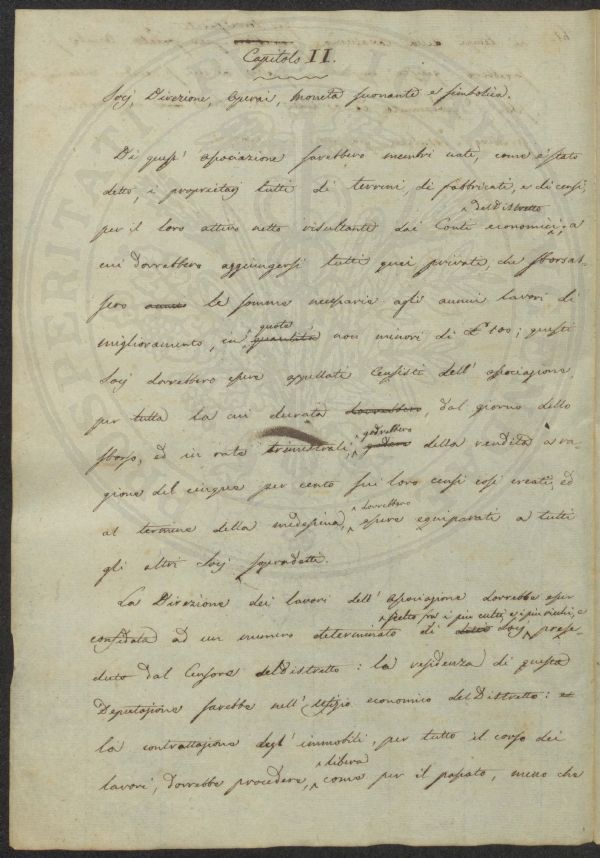 Capitolo II.
Socj, Direzione, Operai, Moneta suonante e simbolica.
Di quest' associazione sarebbero membri nati, come è stato
detto, i proprietarj tutti di terreni, di fabbricati, e di censi,
del Distretto
per il loro attivo netto risultante dai Conti economici; a
cui dovrebbero aggiungersi tutti quei privati, che sborsas-
sero annue le somme necessarie agli annui lavori di
quote
miglioramento, in quantità non minori di £ 100; questi
Socj dovrebbero essere appellati Censisti dell' associazione,
per tutta la cui durata dovrebbero, dal giorno dello
godrebbero
sborso, ed in rate trimestrali, godere della rendita a ra-
gione del cinque per cento sui loro censi così creati, ed
dovrebbero
al termine della medesima, essere equiparati a tutti
gli altri Socj sopradetti.
La Direzione dei lavori dell' associazione dovrebbe esser
scelto fra i più culti, e i più ricchi, e
confidata ad un numero determinato di detti Socj prese-
duto dal Censore del Distretto: la residenza di questa
Deputazione sarebbe nell' Ufizio economico del Distretto: e
la contrattazione degl' immobili, per tutto il corso dei
libera
lavori, dovrebbe procedere, come per il passato, meno che